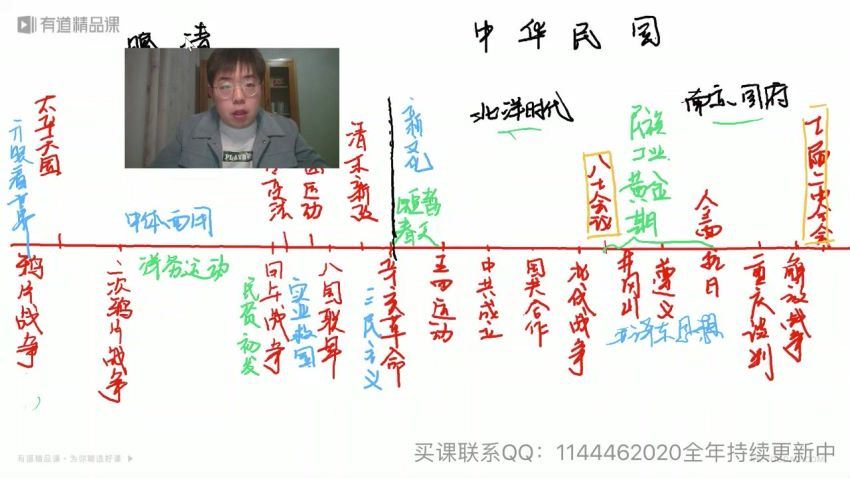 有道精品课
晚清
中华民国
太平天国
开眼看世界
变法
运动
清末新政
新文化
短暂春天
北洋时代
八七会议
民族工业黄金期
南京国府
全面
七届二中全会
中体西用
洋务运动
鸦片战争
二次鸦片战争
民资初发
甲午战争
实业救国
八国联军
三民主义
辛亥革命
五四运动
中共成立
国共合作
北伐战争
井冈山
遵义
抗日
毛泽东思想
重庆谈判
解放战争
PLAYBOY
有道精品课·为你精选好课
买课联系QQ：1144462020全年持续更新中